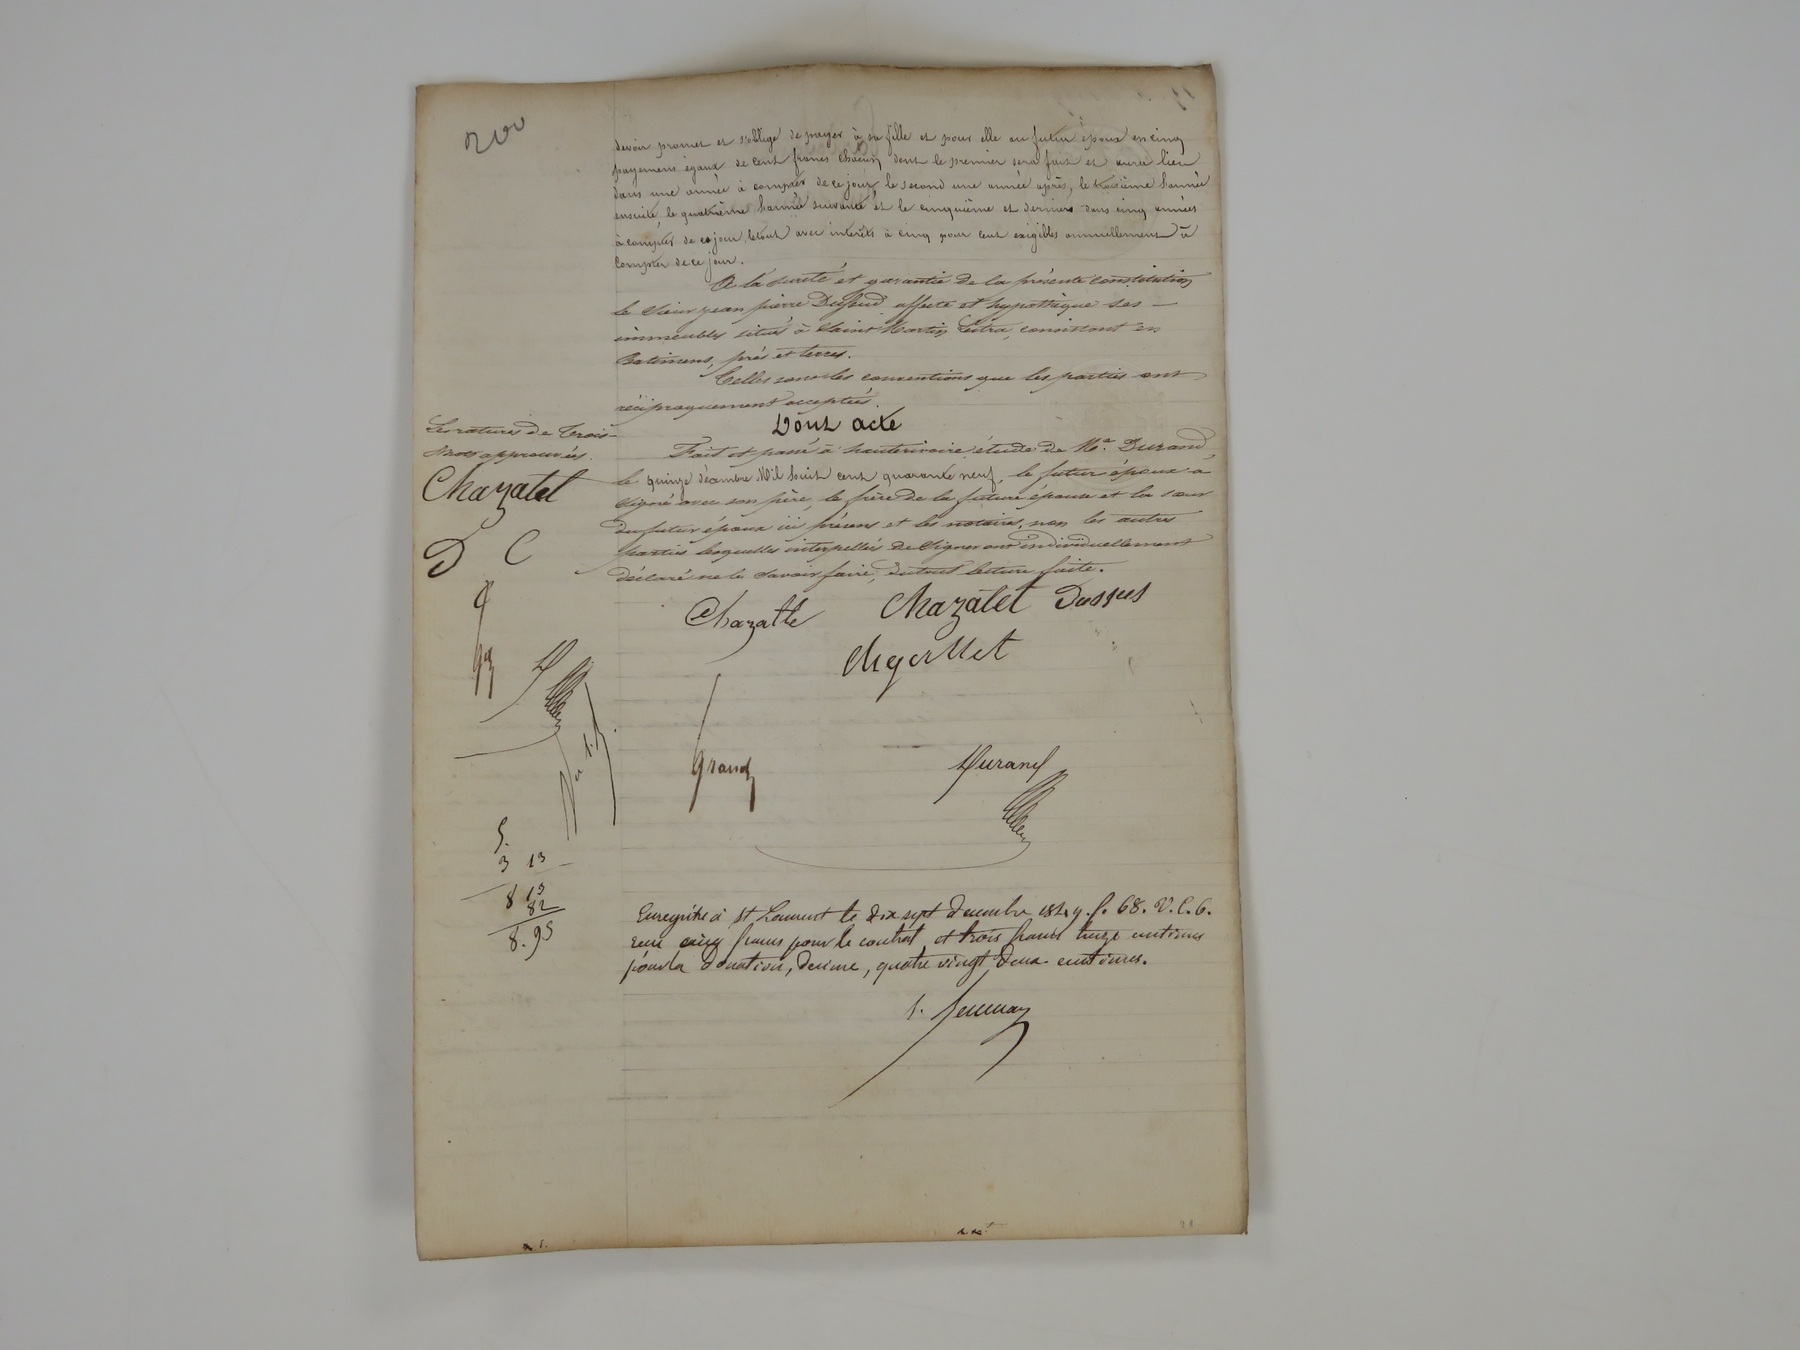 devoir promet et s'oblige de payer à sa fille et pour elle au futur époux en cinq
payemens égaux de cent francs chacun, dont le premier sera fait et aura lieu
dans une année à compter de ce jour, le second une année après, le troisième l'année
ensuite, le quatrième l'année suivante et le cinquième et dernier dans cinq années
à compter de ce jour, le tout avec intérêts à cinq pour cent exigibles annuellement à
compter de ce jour.
A la sureté et garantie de la présente constitution
le sieur jean pierre affecte et hypothèque ses
immeubles situés à Saint Martin consistant en
Batimens, prés et terres.
Telles sont les conventions que les parties ont
réciproquement acceptées.
Dont acte
Les ratures de trois
mots approuvées.
Chazalet
D C
Fait et passé à hauterivoire étude de Me. Durand,
le quinze décembre Mil huit cent quarante neuf, le futur époux a
signé avec son père, le frère de la future épouse et la sœur
du futur époux ici présens et les notaires, non les autres
parties lesquelles interpellées de signer ont individuellement
déclaré ne le savoir faire, du tout lecture faite.
Chazalle Chazalet Dussus
grand Durand
5.
3 13
8 13
82
8.95
Enregistré à St Laurent le dix sept décembre 1849. f. 68. V. C. 6.
reçu cinq francs pour le contrat, et trois francs treize centimes
pour la donation, décime, quatre vingt deux centimes.